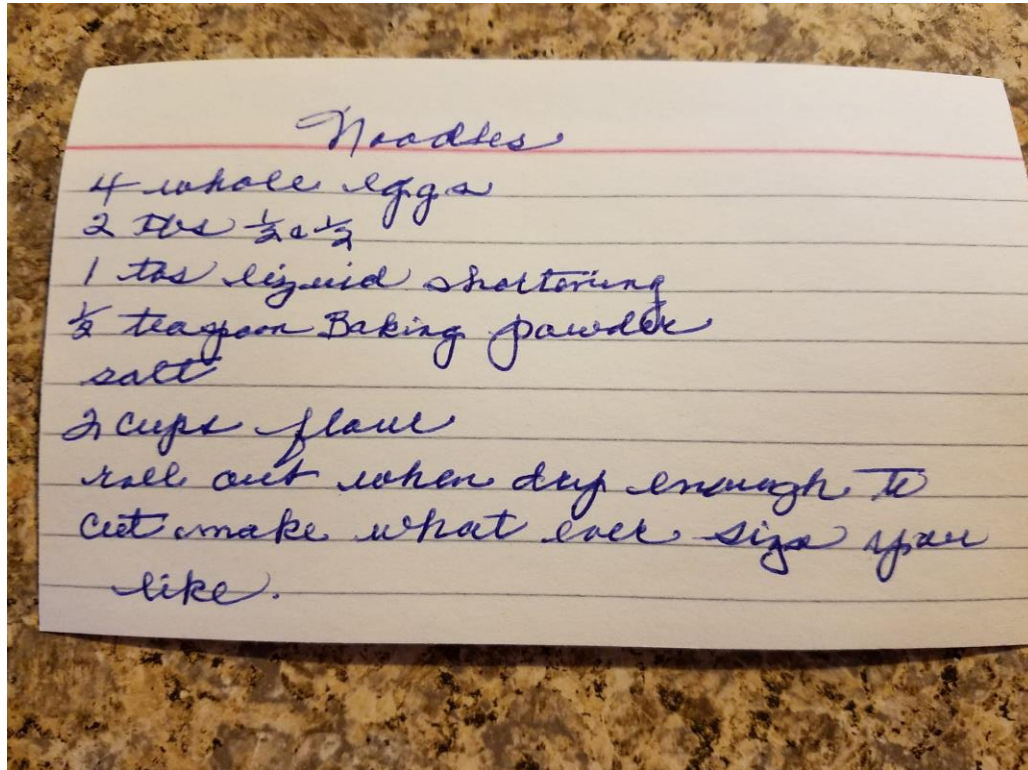 Noodles
4 whole eggs
2 Tbs ½ & ½
1 tbs liquid shortening
½ teaspoon Baking powder
salt
2 cups flour
roll out when dry enough to
cut make what ever size you
like.